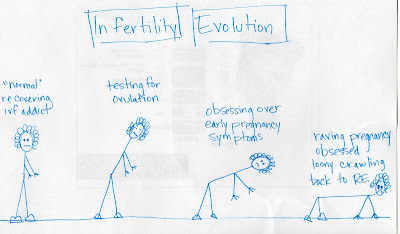 Infertility Evolution
"normal"
recovering
ivf addict
testing for
ovulation
obsessing over
early pregnancy
symptoms
raving pregnancy
obsessed
loony crawling
back to RE.